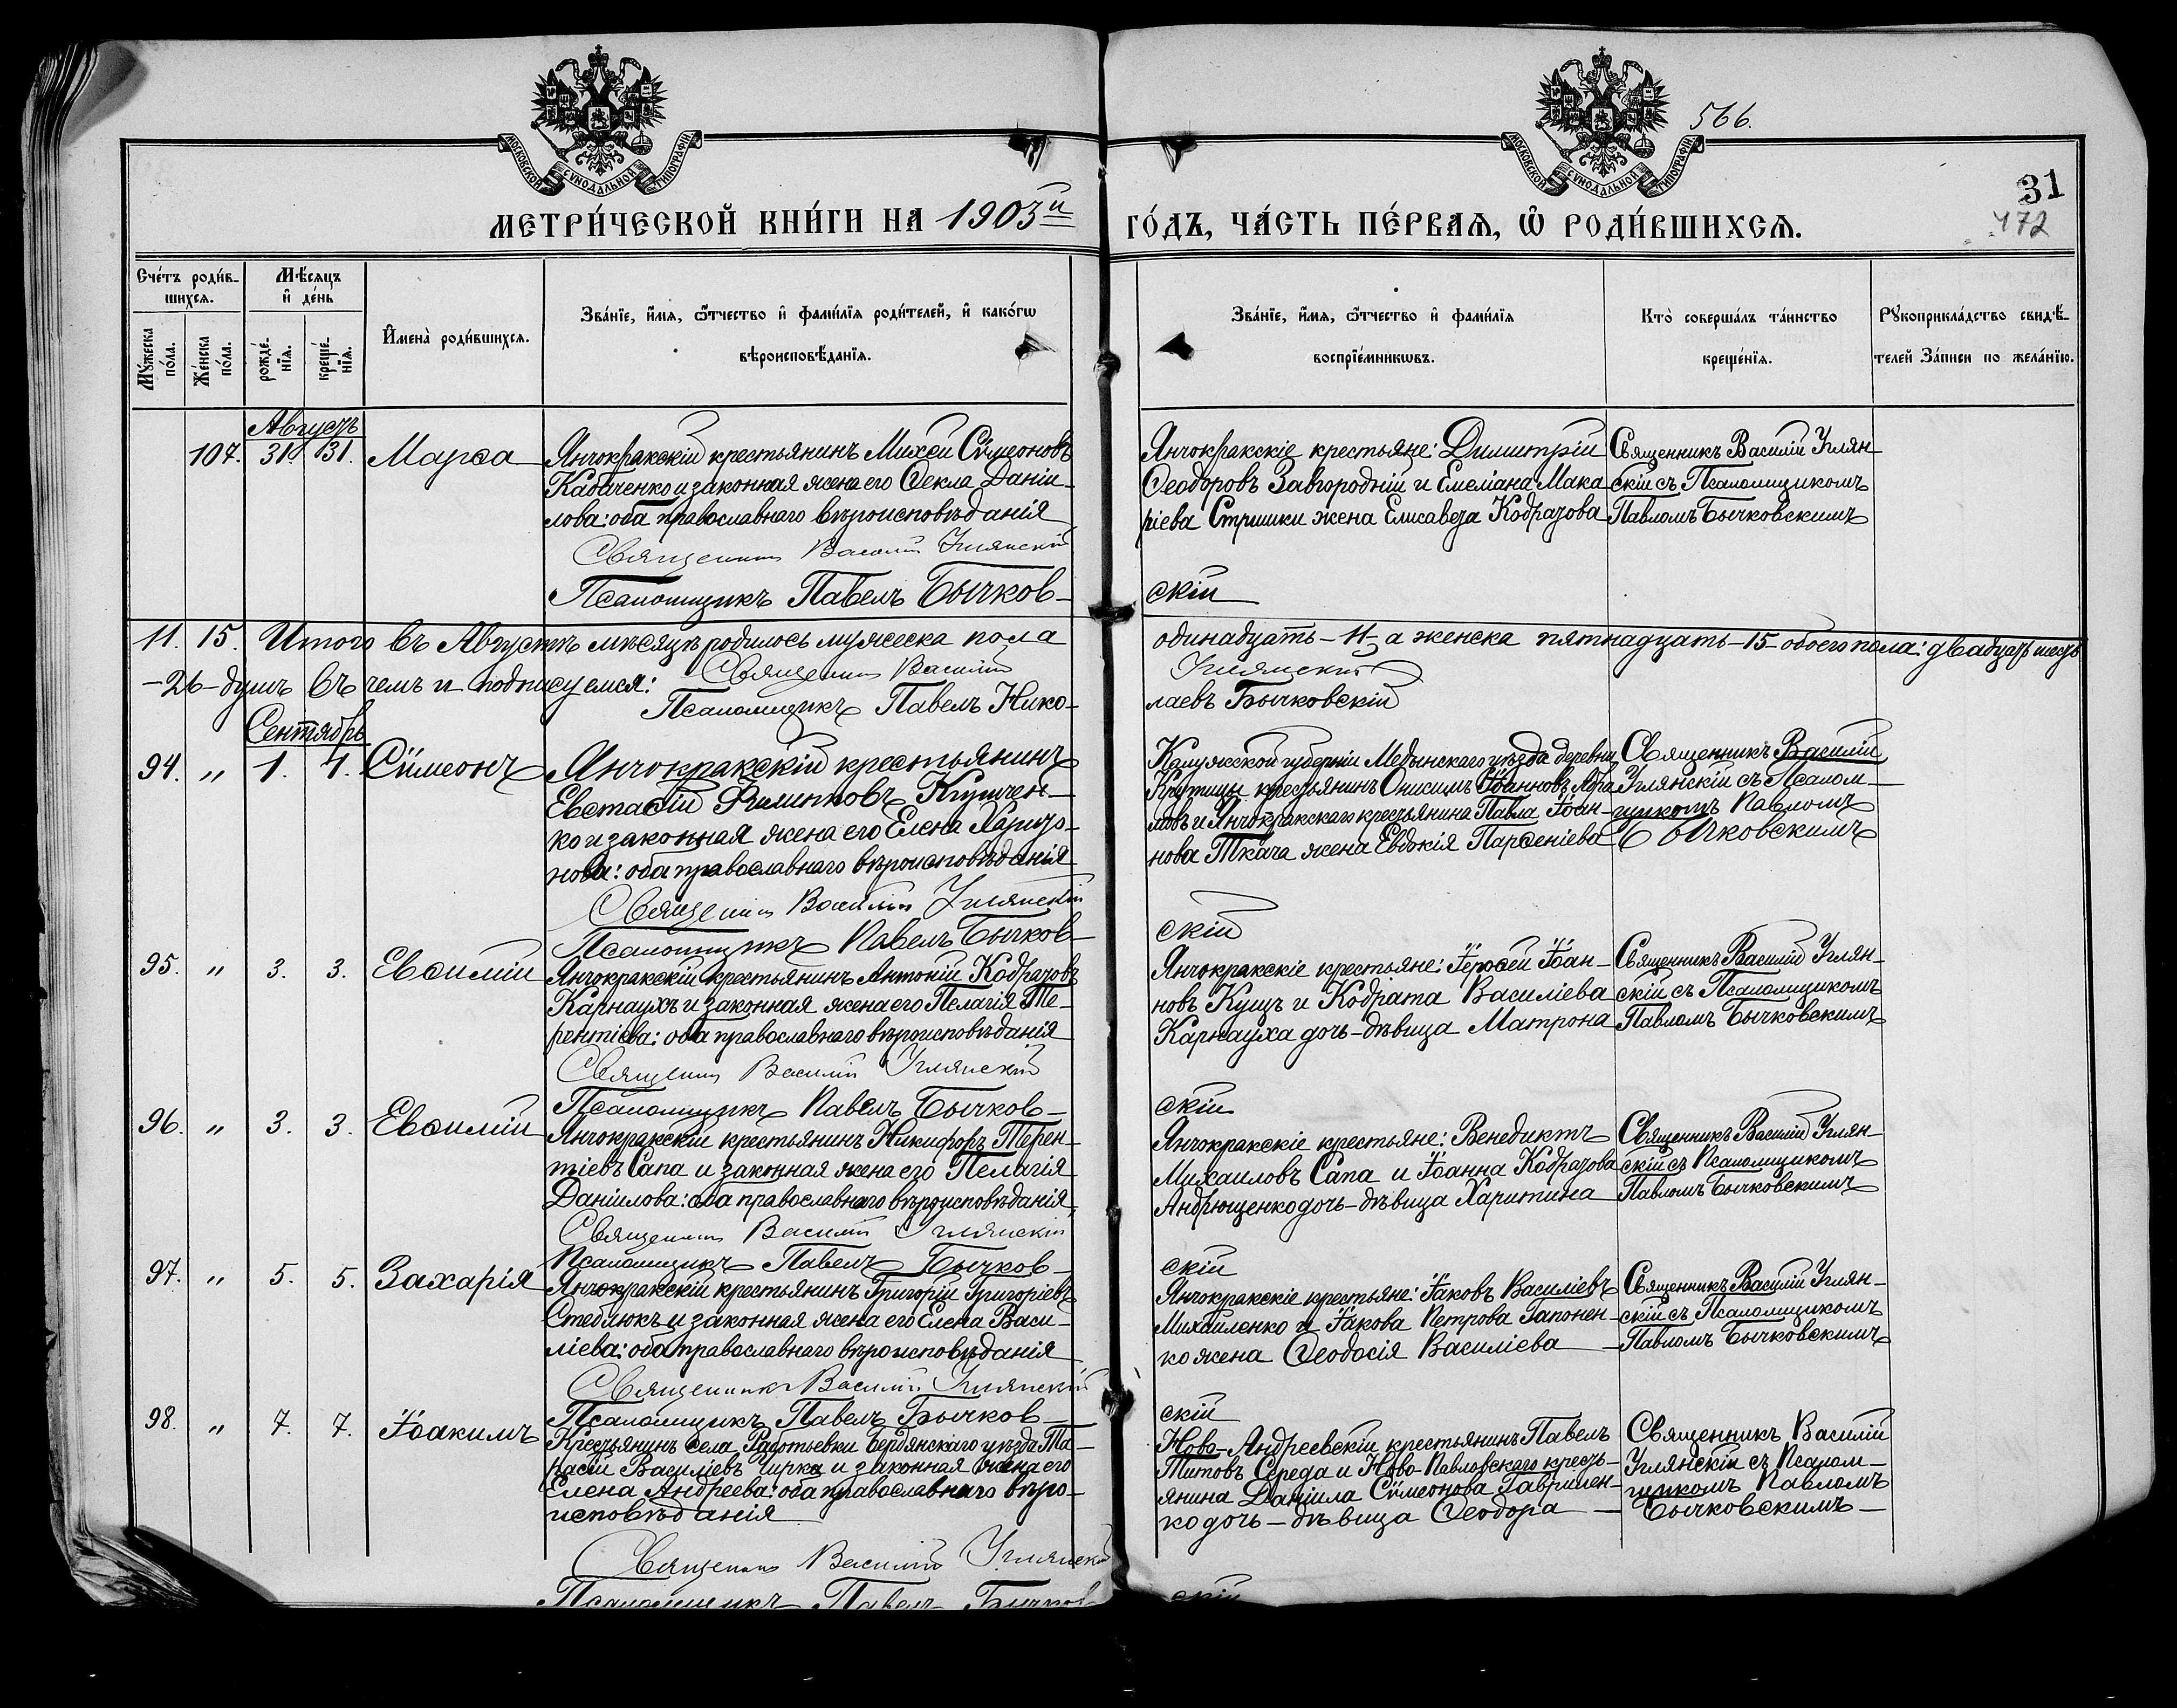 566.
31
472
МОСКОВСКОЙ СѴНОДАЛЬНОЙ ТИПОГРАФІИ
МОСКОВСКОЙ СѴНОДАЛЬНОЙ ТИПОГРАФІИ
МЕТРИ́ЧЕСКОЙ КНИ́ГИ НА 1903й ГО́ДЪ, ЧА́СТЬ ПЕ́РВАѦ, Ѡ҆ РОДИ́ВШИХСѦ.
Сче́тъ роди́в-
шихсѧ.
Мꙋ́жеска по́ла.
Же́нска по́ла.
Мѣ́сѧцъ
и҆ де́нь
рожде́-нїѧ.
креще́-нїѧ.
И҆мена̀ роди́вшихсѧ.
Зва́нїе, и҆́мѧ, ѻ҆́тчество и҆ фами́лїѧ роди́телей, и҆ како́гѡ
вѣроисповѣ́данїѧ.
Зва́нїе, и҆́мѧ, ѻ҆́тчество и҆ фами́лїѧ
воспрїе́мникѡвъ.
Кто̀ соверша́лъ та́инство
креще́нїѧ.
Рꙋкоприкла́дство свидѣ́-
телей За́писи по жела́нїю.
Августъ
107. 31. 31. Марѳа
Янчокракскій крестьянинъ Михей Сѵмеоновъ
Кабаченко и законная жена его Ѳекла Даніи-
лова: оба православнаго вѣроисповѣданія
Священникъ Василій Углянскій
Псаломщикъ Павелъ Бычков-
Янчокракскіе крестьяне: Димитрій
Ѳеодоровъ Завгородній и Емеліана Мака
ріева Стришки жена Елисавета Кодратова
скій
Священникъ Василій Углян-
скій съ Псаломщикомъ
Павломъ Бычковскимъ
11. 15. Итого въ Августѣ мѣсяцѣ родилось мужеска пола одинадцать - 11 - а женска пятнадцать - 15 - обоего пола: двадцать шесть
- 26 - душъ въ чемъ и подписуемся: Священникъ Василій Углянскій
Псаломщикъ Павелъ Нико- лаевъ Бычковскій
Сентябрь
94. " 1. 4. Сѵмеонъ
Янчокракскій крестьянинъ
Евстаѳій Филипповъ Купчен-
ко и законная жена его Елена Харито-
нова: оба православнаго вѣроисповѣданія
Священникъ Василій Углянскій
Псаломщикъ Павелъ Бычков-
Калужской губерніи Медынскаго уѣзда деревни
Крутицы крестьянинъ Онисимъ Іоанновъ Абра
мовъ и Янчокракскаго крестьянина Павла Іоан-
нова Ткача жена Евдокія Парѳеніева
скій
Священникъ Василій
Углянскій съ Псалом-
щикомъ Павломъ
Бычковскимъ
95. " 3. 3. Евѳимій
Янчокракскій крестьянинъ Антоній Кодратовъ
Карнаухъ и законная жена его Пелагія Те-
рентіева: оба православнаго вѣроисповѣданія
Священникъ Василій Углянскій
Псаломщикъ Павелъ Бычков-
Янчокракскіе крестьяне: Іероѳей Іоан-
новъ Кущъ и Кодрата Василіева
Карнауха дочь - дѣвица Матрона
скій
Священникъ Василій Углян-
скій съ Псаломщикомъ
Павломъ Бычковскимъ
96. " 3. 3. Евѳимій
Янчокракскій крестьянинъ Никифоръ Терен-
тіевъ Сапа и законная жена его Пелагія
Даніилова: оба православнаго вѣроисповѣданія,
Священникъ Василій Углянскій
Псаломщикъ Павелъ Бычков-
Янчокракскіе крестьяне: Венедиктъ
Михаиловъ Сапа и Іоанна Кодратова
Андрющенко дочь - дѣвица Харитина
скій
Священникъ Василій Углян-
скій съ Псаломщикомъ
Павломъ Бычковскимъ
97. " 5. 5. Захарія
Янчокракскій крестьянинъ Григорій Григоріевъ
Стеблюкъ и законная жена его Елена Васи-
ліева: оба православнаго вѣроисповѣданія
Священникъ Василій Углянскій
Псаломщикъ Павелъ Бычков-
Янчокракскіе крестьяне: Іаковъ Василіевъ
Михайленко и Іакова Петрова Гапонен-
ко жена Ѳеодосія Василіева
скій
Священникъ Василій Углян-
скій съ Псаломщикомъ
Павломъ Бычковскимъ
98. " 7. 7. Іоакимъ
Крестьянинъ села Работьевки Бердянскаго уѣзда Та-
расій Василіевъ Чирка и законная жена его
Елена Андреева: оба православнаго вѣро-
исповѣданія
Священникъ Василій Углянскій
Псаломщикъ Павелъ Бычков-
Ново-Андреевскій крестьянинъ Павелъ
Титовъ Середа и Ново-Павловскаго кресть-
янина Даніила Сѵмеонова Гавришен-
ко дочь - дѣвица Ѳеодора
скій
Священникъ Василій
Углянскій съ Псалом-
щикомъ Павломъ
Бычковскимъ